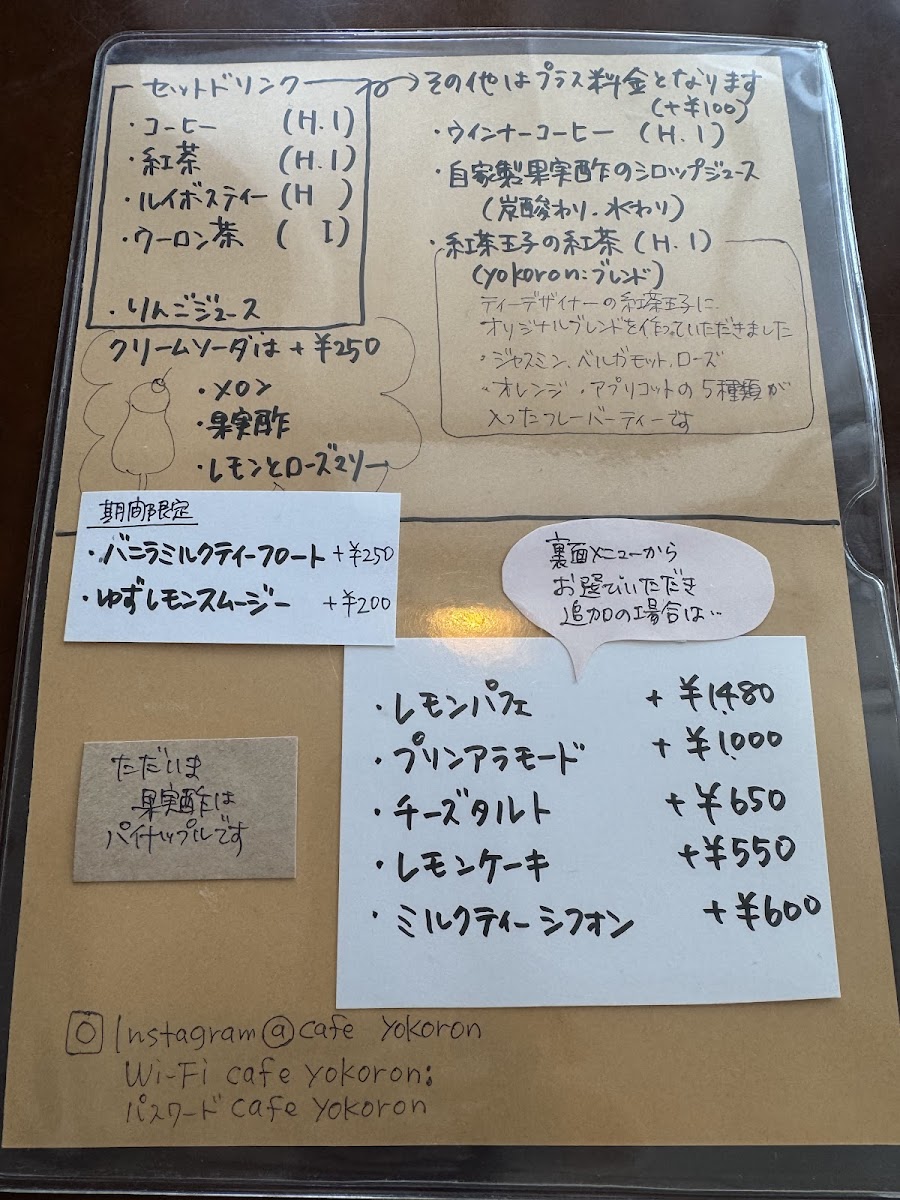 セットドリンク
・コーヒー (H.I)
・紅茶 (H.I)
・ルイボスティー (H )
・ウーロン茶 ( I)
・りんごジュース
その他はプラス料金となります
(+¥100)
・ウインナーコーヒー (H.I)
・自家製果実酢のシロップジュース
(炭酸わり.水わり)
・紅茶王子の紅茶 (H.I)
(yokoron:ブレンド)
ティーデザイナーの紅茶王子に
オリジナルブレンドを作っていただきました
・ジャスミン、ベルガモット、ローズ
・オレンジ・アプリコットの5種類が
入ったフレーバーティーです
クリームソーダは+¥250
・メロン
・果実酢
・レモンとローズマリー
期間限定
・バニラミルクティーフロート +¥250
・ゆずレモンスムージー +¥200
裏面メニューから
お選びいただき
追加の場合は…
・レモンパフェ +¥1,480
・プリンアラモード +¥1,000
・チーズタルト +¥650
・レモンケーキ +¥550
・ミルクティーシフォン +¥600
ただいま
果実酢は
パイナップルです
Instagram@cafe yokoron
Wi-Fi cafe yokoron:
パスワード cafe yokoron